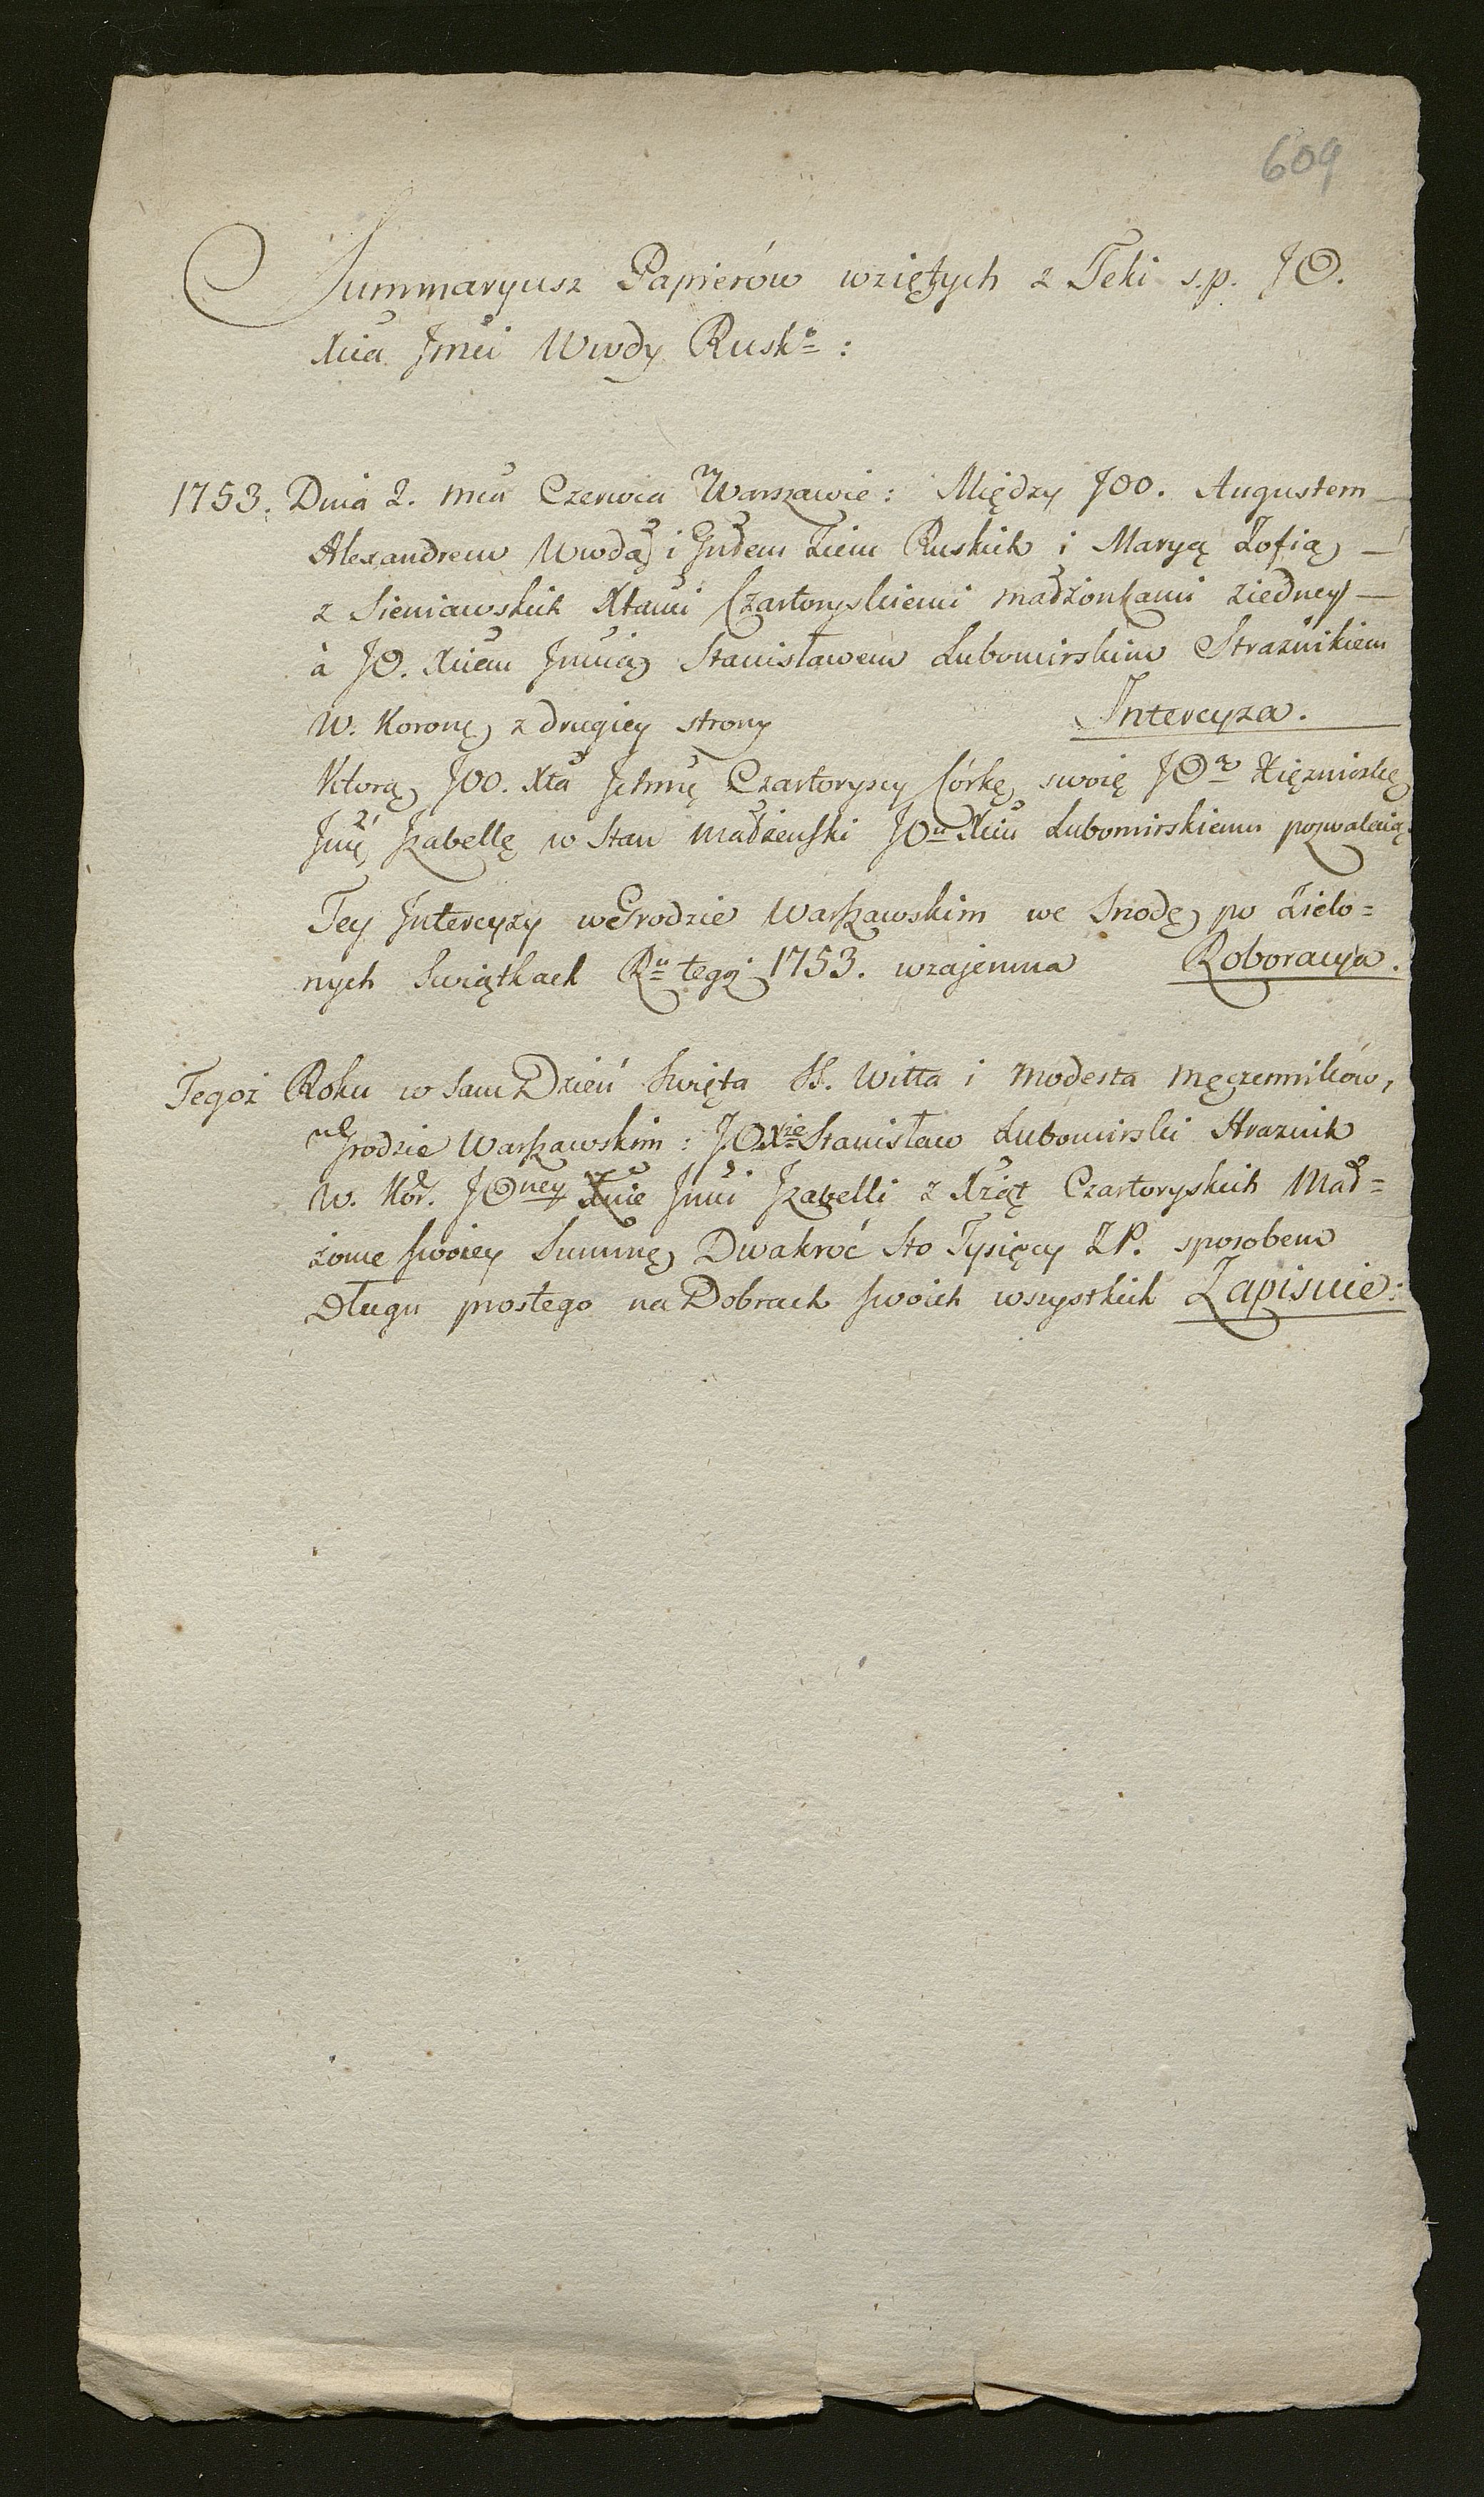 609
Summaryusz Papierów wziętych z Teki s.p. JO.
Xcia Jmci Wwdy Rusko:
1753. Dnia 2. mca Czerwca w Warszawie: Między JOO. Augustem
Alexandrem Wwdą i Gnłem Ziem Ruskich i Maryą Zofią
z Sieniawskich Xtami Czartoryskiemi małżonkami z iedney
à JO. Xciem Jmcią Stanisławem Lubomirskim Strażnikiem
W. Koronę z drugiey strony Intercyza.
Ktorą JOO. Xta Ichmć Czartoryscy Córkę swoię JOą Xiężniczkę
Jmć Izabellę w Stan małżeński JOu Xciu Lubomirskiemu pozwalaią
Tey Intercyzy w Grodzie Warszawskim we Srzodę po Zielo=
nych Swiątkach Ru tegoż 1753. wzajemna Roboracya.
Tegoż Roku w sam Dzień Swięta SS. Witta i Modesta męczenników,
w Grodzie Warszawskim: JOXże Stanisław Lubomirski Strażnik
W. Kor. JOney Xnie Jmci Izabelli z Xżąt Czartoryskich Mał=
żonce swoiey Summę Dwakroć Sto Tysięcy ZP. sposobem
Długu prostego na Dobrach swoich wszystkich Zapisuie: